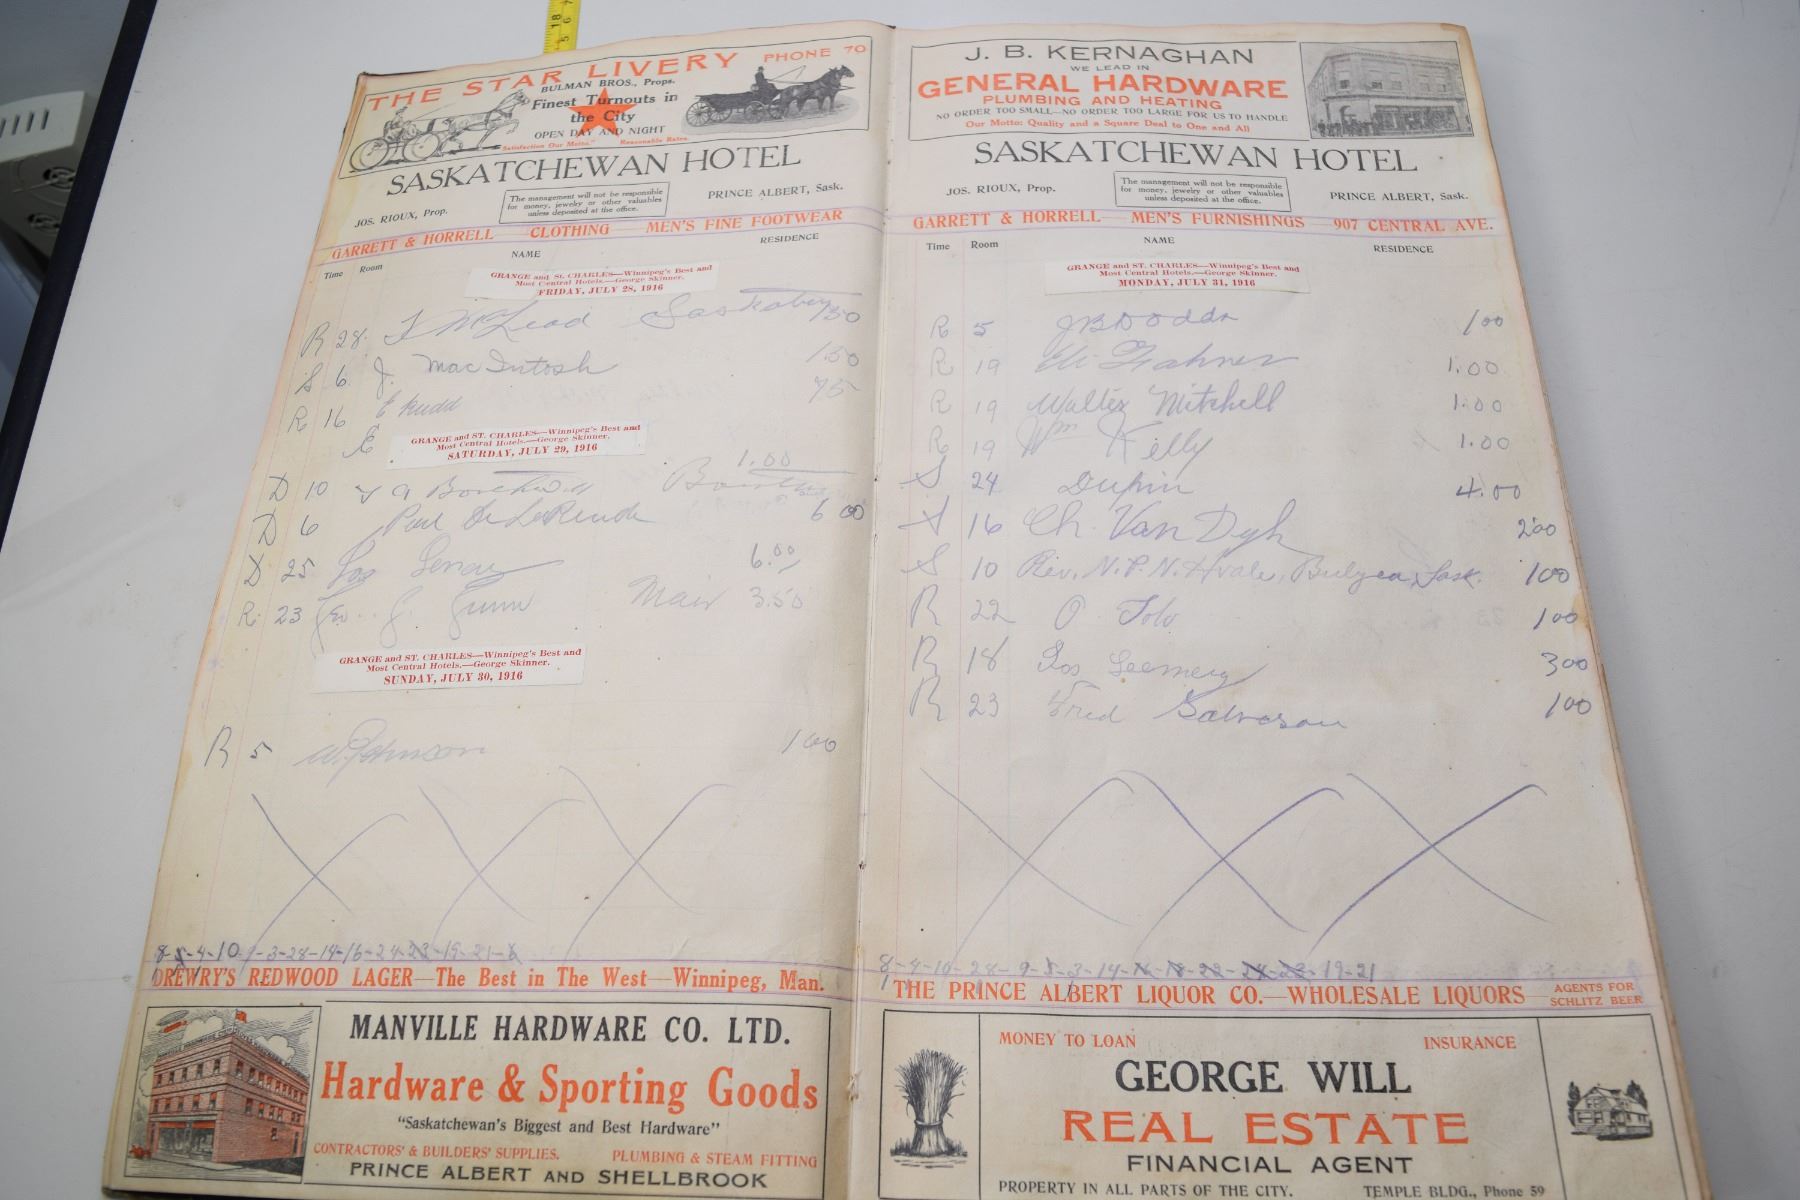 THE STAR LIVERY PHONE 70
BULMAN BROS., Props.
Finest Turnouts in
the City
OPEN DAY AND NIGHT
Satisfaction Our Motto." Reasonable Rates.
SASKATCHEWAN HOTEL
JOS. RIOUX, Prop.
The management will not be responsible
for money, jewelry or other valuables
unless deposited at the office.
PRINCE ALBERT, Sask.
GARRETT & HORRELL CLOTHING MEN'S FINE FOOTWEAR
Time Room NAME RESIDENCE
GRANGE and St. CHARLES—Winnipeg's Best and
Most Central Hotels.—George Skinner.
FRIDAY, JULY 28, 1916
R 28 McLeod Saskatoon
S 6 J. MacIntosh 1.50
R 16 E Rudd 75
E
GRANGE and ST. CHARLES—Winnipeg's Best and
Most Central Hotels.—George Skinner.
SATURDAY, JULY 29, 1916
1.00
D 10
D 6 Paul 6 00
D 25 Jos 6.00
R. 23 Geo. J. Gunn 3.50
GRANGE and ST. CHARLES—Winnipeg's Best and
Most Central Hotels.—George Skinner.
SUNDAY, JULY 30, 1916
R 5 W. Johnson 1 00
8-5-4-10-9-3-28-14-16-24-23-19-21-6
DREWRY'S REDWOOD LAGER—The Best in The West—Winnipeg, Man.
MANVILLE HARDWARE CO. LTD.
Hardware & Sporting Goods
"Saskatchewan's Biggest and Best Hardware"
CONTRACTORS' & BUILDERS' SUPPLIES. PLUMBING & STEAM FITTING
PRINCE ALBERT AND SHELLBROOK
J. B. KERNAGHAN
WE LEAD IN
GENERAL HARDWARE
PLUMBING AND HEATING
NO ORDER TOO SMALL—NO ORDER TOO LARGE FOR US TO HANDLE
Our Motto: Quality and a Square Deal to One and All
SASKATCHEWAN HOTEL
JOS. RIOUX, Prop.
The management will not be responsible
for money, jewelry or other valuables
unless deposited at the office.
PRINCE ALBERT, Sask.
GARRETT & HORRELL— MEN'S FURNISHINGS —907 CENTRAL AVE.
Time Room NAME RESIDENCE
GRANGE and ST. CHARLES—Winnipeg's Best and
Most Central Hotels.—George Skinner.
MONDAY, JULY 31, 1916
R 5 J B Dodds 1 00
R 19 Eli 1.00
R 19 Walter Mitchell 1.00
R 19 Wm Kelly 1.00
S 24 Dupin 4.00
S 16 Ch. Van Dyk 2 00
S 10 Rev. N. P. N. Hvale, Bulyea, Sask. 1 00
R 22 O 1 00
R 18 Jos 3 00
R 23 Fred Salveson 1 00
8-4-10-28-9-5-3-14-16-18-22-24-23-19-21
THE PRINCE ALBERT LIQUOR CO.—WHOLESALE LIQUORS— AGENTS FOR
SCHLITZ BEER
MONEY TO LOAN INSURANCE
GEORGE WILL
REAL ESTATE
FINANCIAL AGENT
PROPERTY IN ALL PARTS OF THE CITY. TEMPLE BLDG., Phone 59